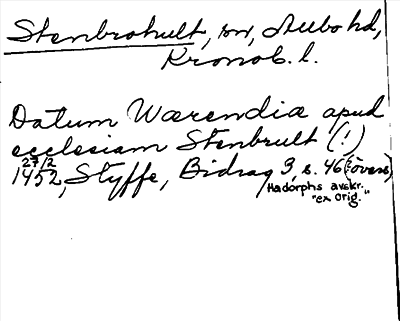 Stenbrohult, sn, Allbo hd,
Kronob. l.
Datum Wærendiæ apud
ecclesiam Stenbrult (!)
27/2
1452, Styffe, Bidrag 3, s. 46 (i övers)
Hadorphs avskr.
"ex orig."